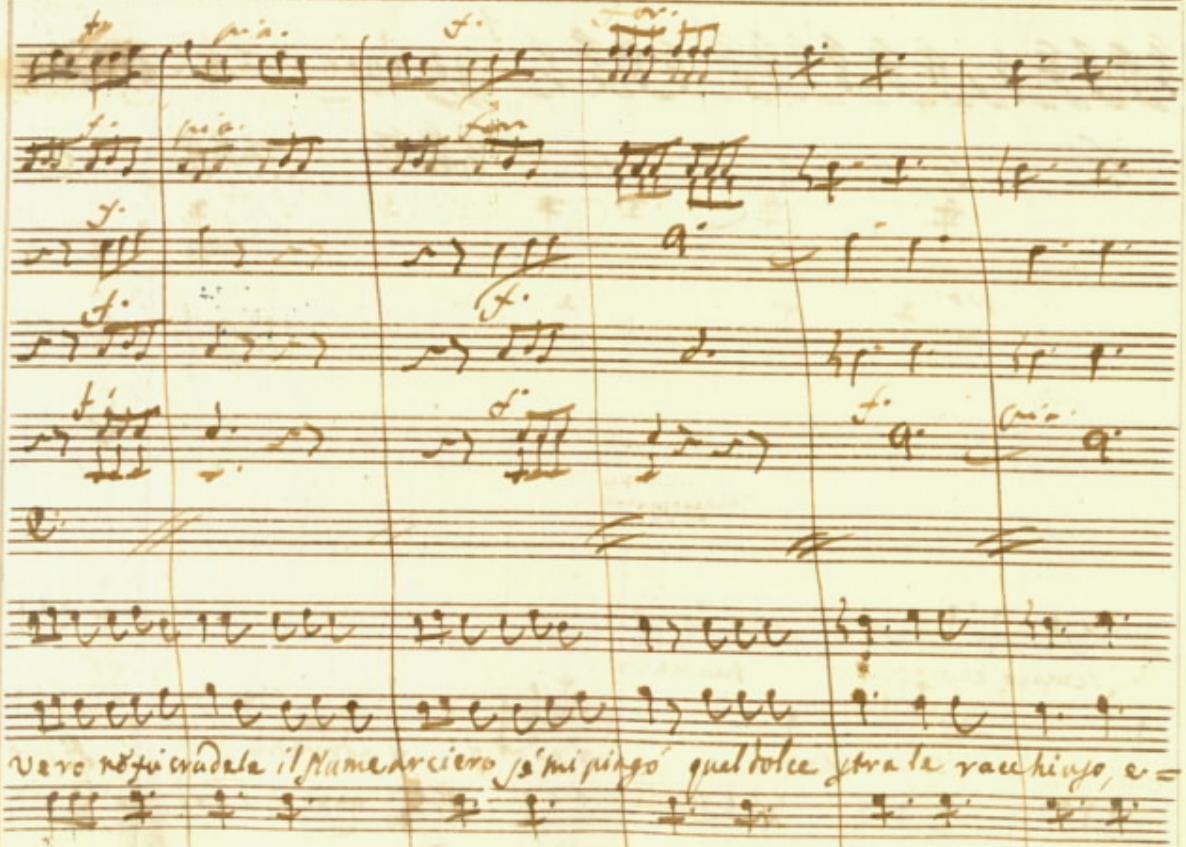 fr pia. f. for.
f. pia. for
f.
f. f.
f. f. f. pia.
vero nõ fu crudele il Nume arciero sé mi piagó quel dolce strale racchiuso, e =